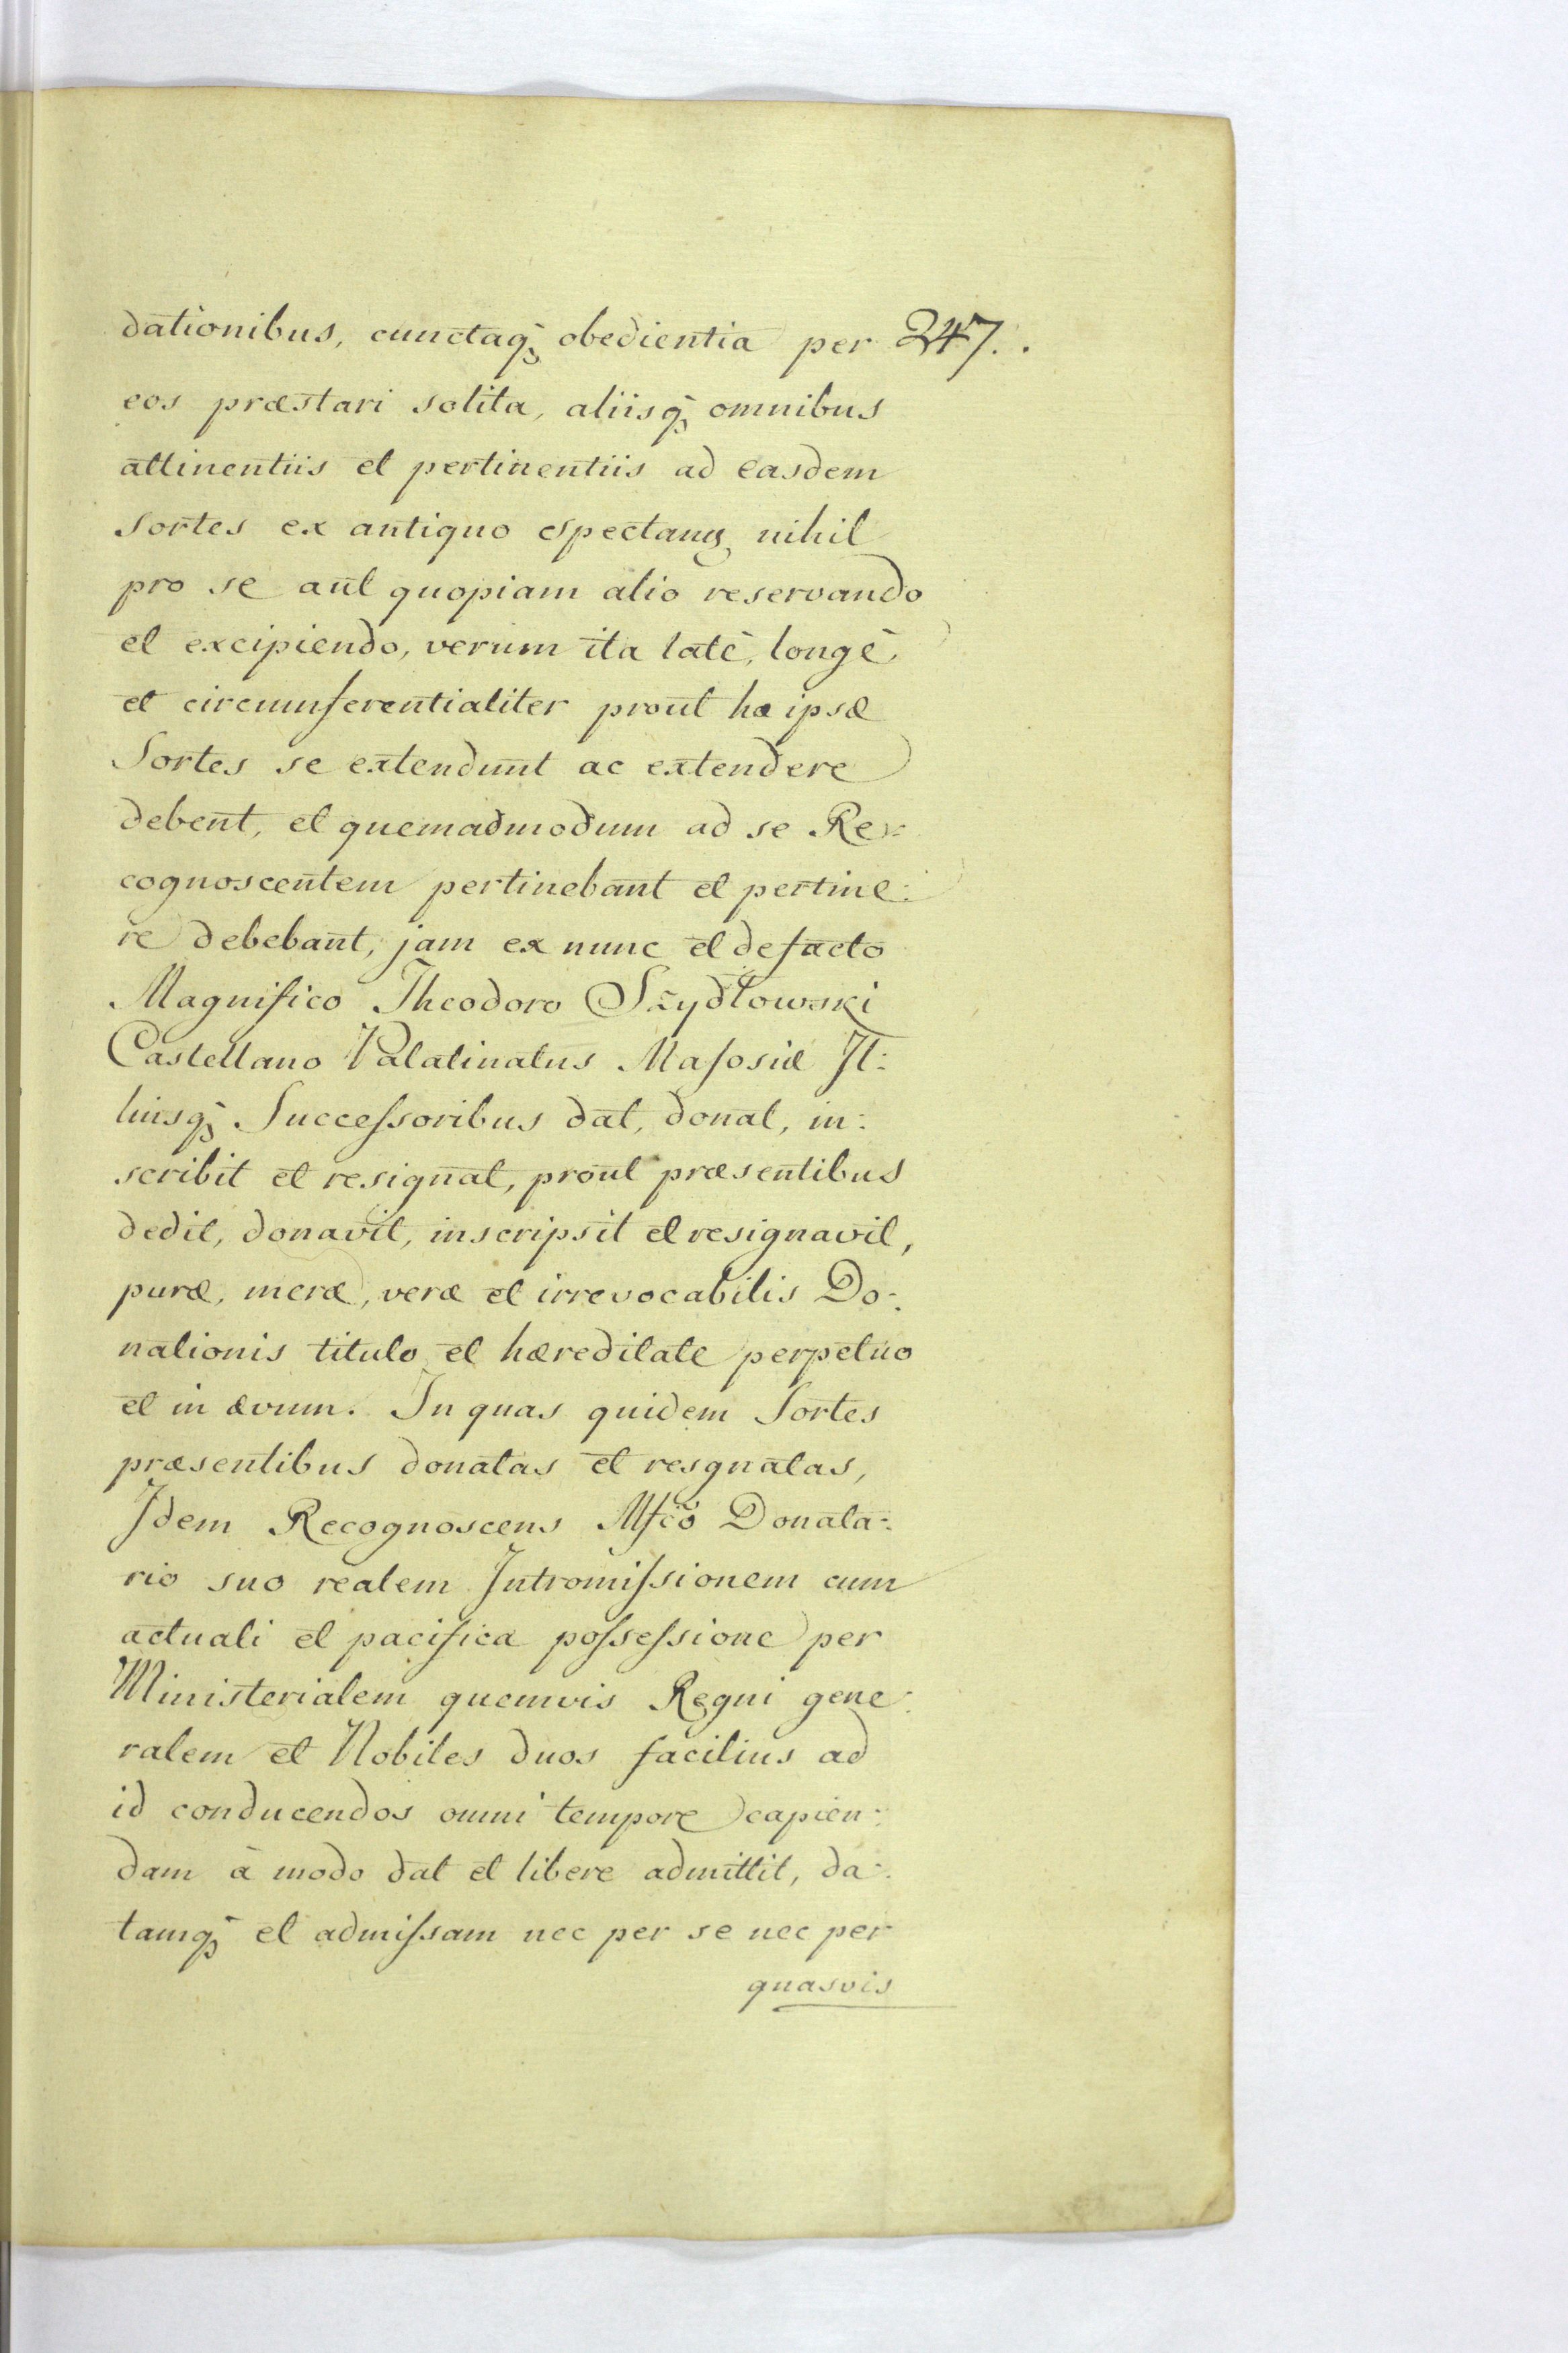 dationibus, cunctaq; obedientia per 247..
eos præstari solita, aliisq; omnibus
attinentiis et pertinentiis ad easdem
sortes ex antiquo spectanŋ nihil
pro se aut quopiam alio reservando
et excipiendo, verum ita latè, longè
et circumferentialiter prout hæ ipsæ
Sortes se extendunt ac extendere
debent, et quemadmodum ad se Re:
cognoscentem pertinebant et pertine:
re debebant, jam ex nunc et de facto
Magnifico Theodoro Szydłowski
Castellano Palatinatus Masosiæ Jl:
liusq; Successoribus dat, donat, in:
scribit et resignat, prout præsentibus
dedit, donavit, inscripsit et resignavit,
puræ, meræ, veræ et irrevocabilis Do:
nationis titulo et hæreditate perpetuo
et in ævum. In quas quidem Sortes
præsentibus donatas et resgnatas,
Jdem Recognoscens Mfco Donata:
rio suo realem Intromissionem cum
actuali et pacifica possessione per
Ministerialem quemvis Regni gene:
ralem et Nobiles duos facilius ad
id conducendos omni tempore capien:
dam à modo dat et libere admittit, da:
tamq; et admissam nec per se nec per
quasvis